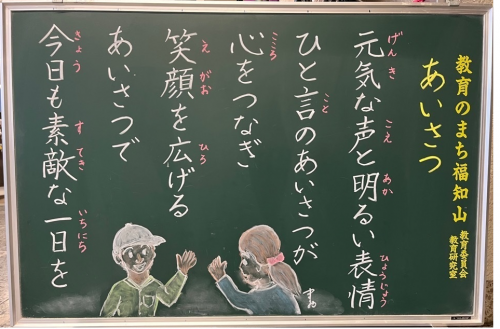 教育のまち福知山
教育委員会
教育研究室
あいさつ
元気な声と明るい表情
げんき こえ あか ひょうじょう
ひと言のあいさつが
こと
心をつなぎ
こころ
笑顔を広げる
えがお ひろ
あいさつで
今日も素敵な一日を
きょう すてき いちにち